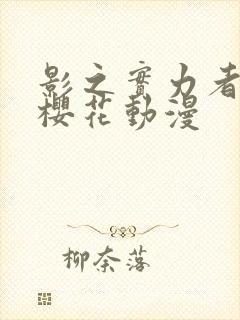 影之實力者
櫻花動漫
柳奈落